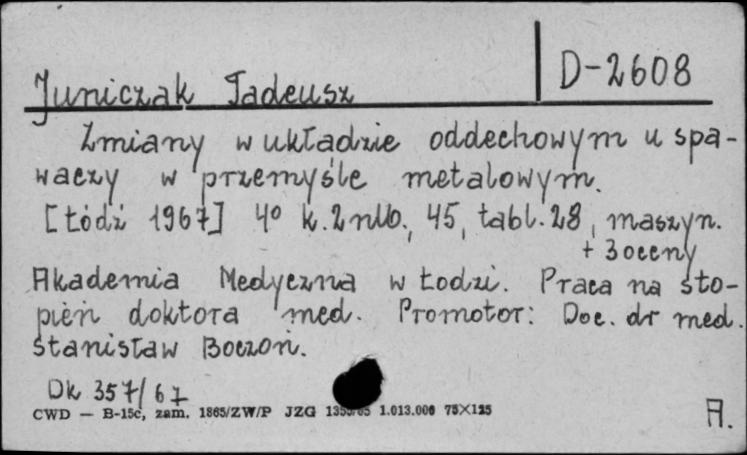 D-2608
Juniczak Tadeusz
Zmiany w układzie oddechowym u spa-
waczy w przemyśle metalowym.
[Łódź 1967] 4° k. 2 nlb., 45, tabl. 28, maszyn.
+ 3 oceny
Akademia Medyczna w Łodzi. Praca na sto-
pień doktora med. Promotor: Doc. dr med.
Stanisław Boczoń.
Dk 357/67
CWD — B-15c, zam. 1865/ZW/P JZG 1.013.000 75×125
A.